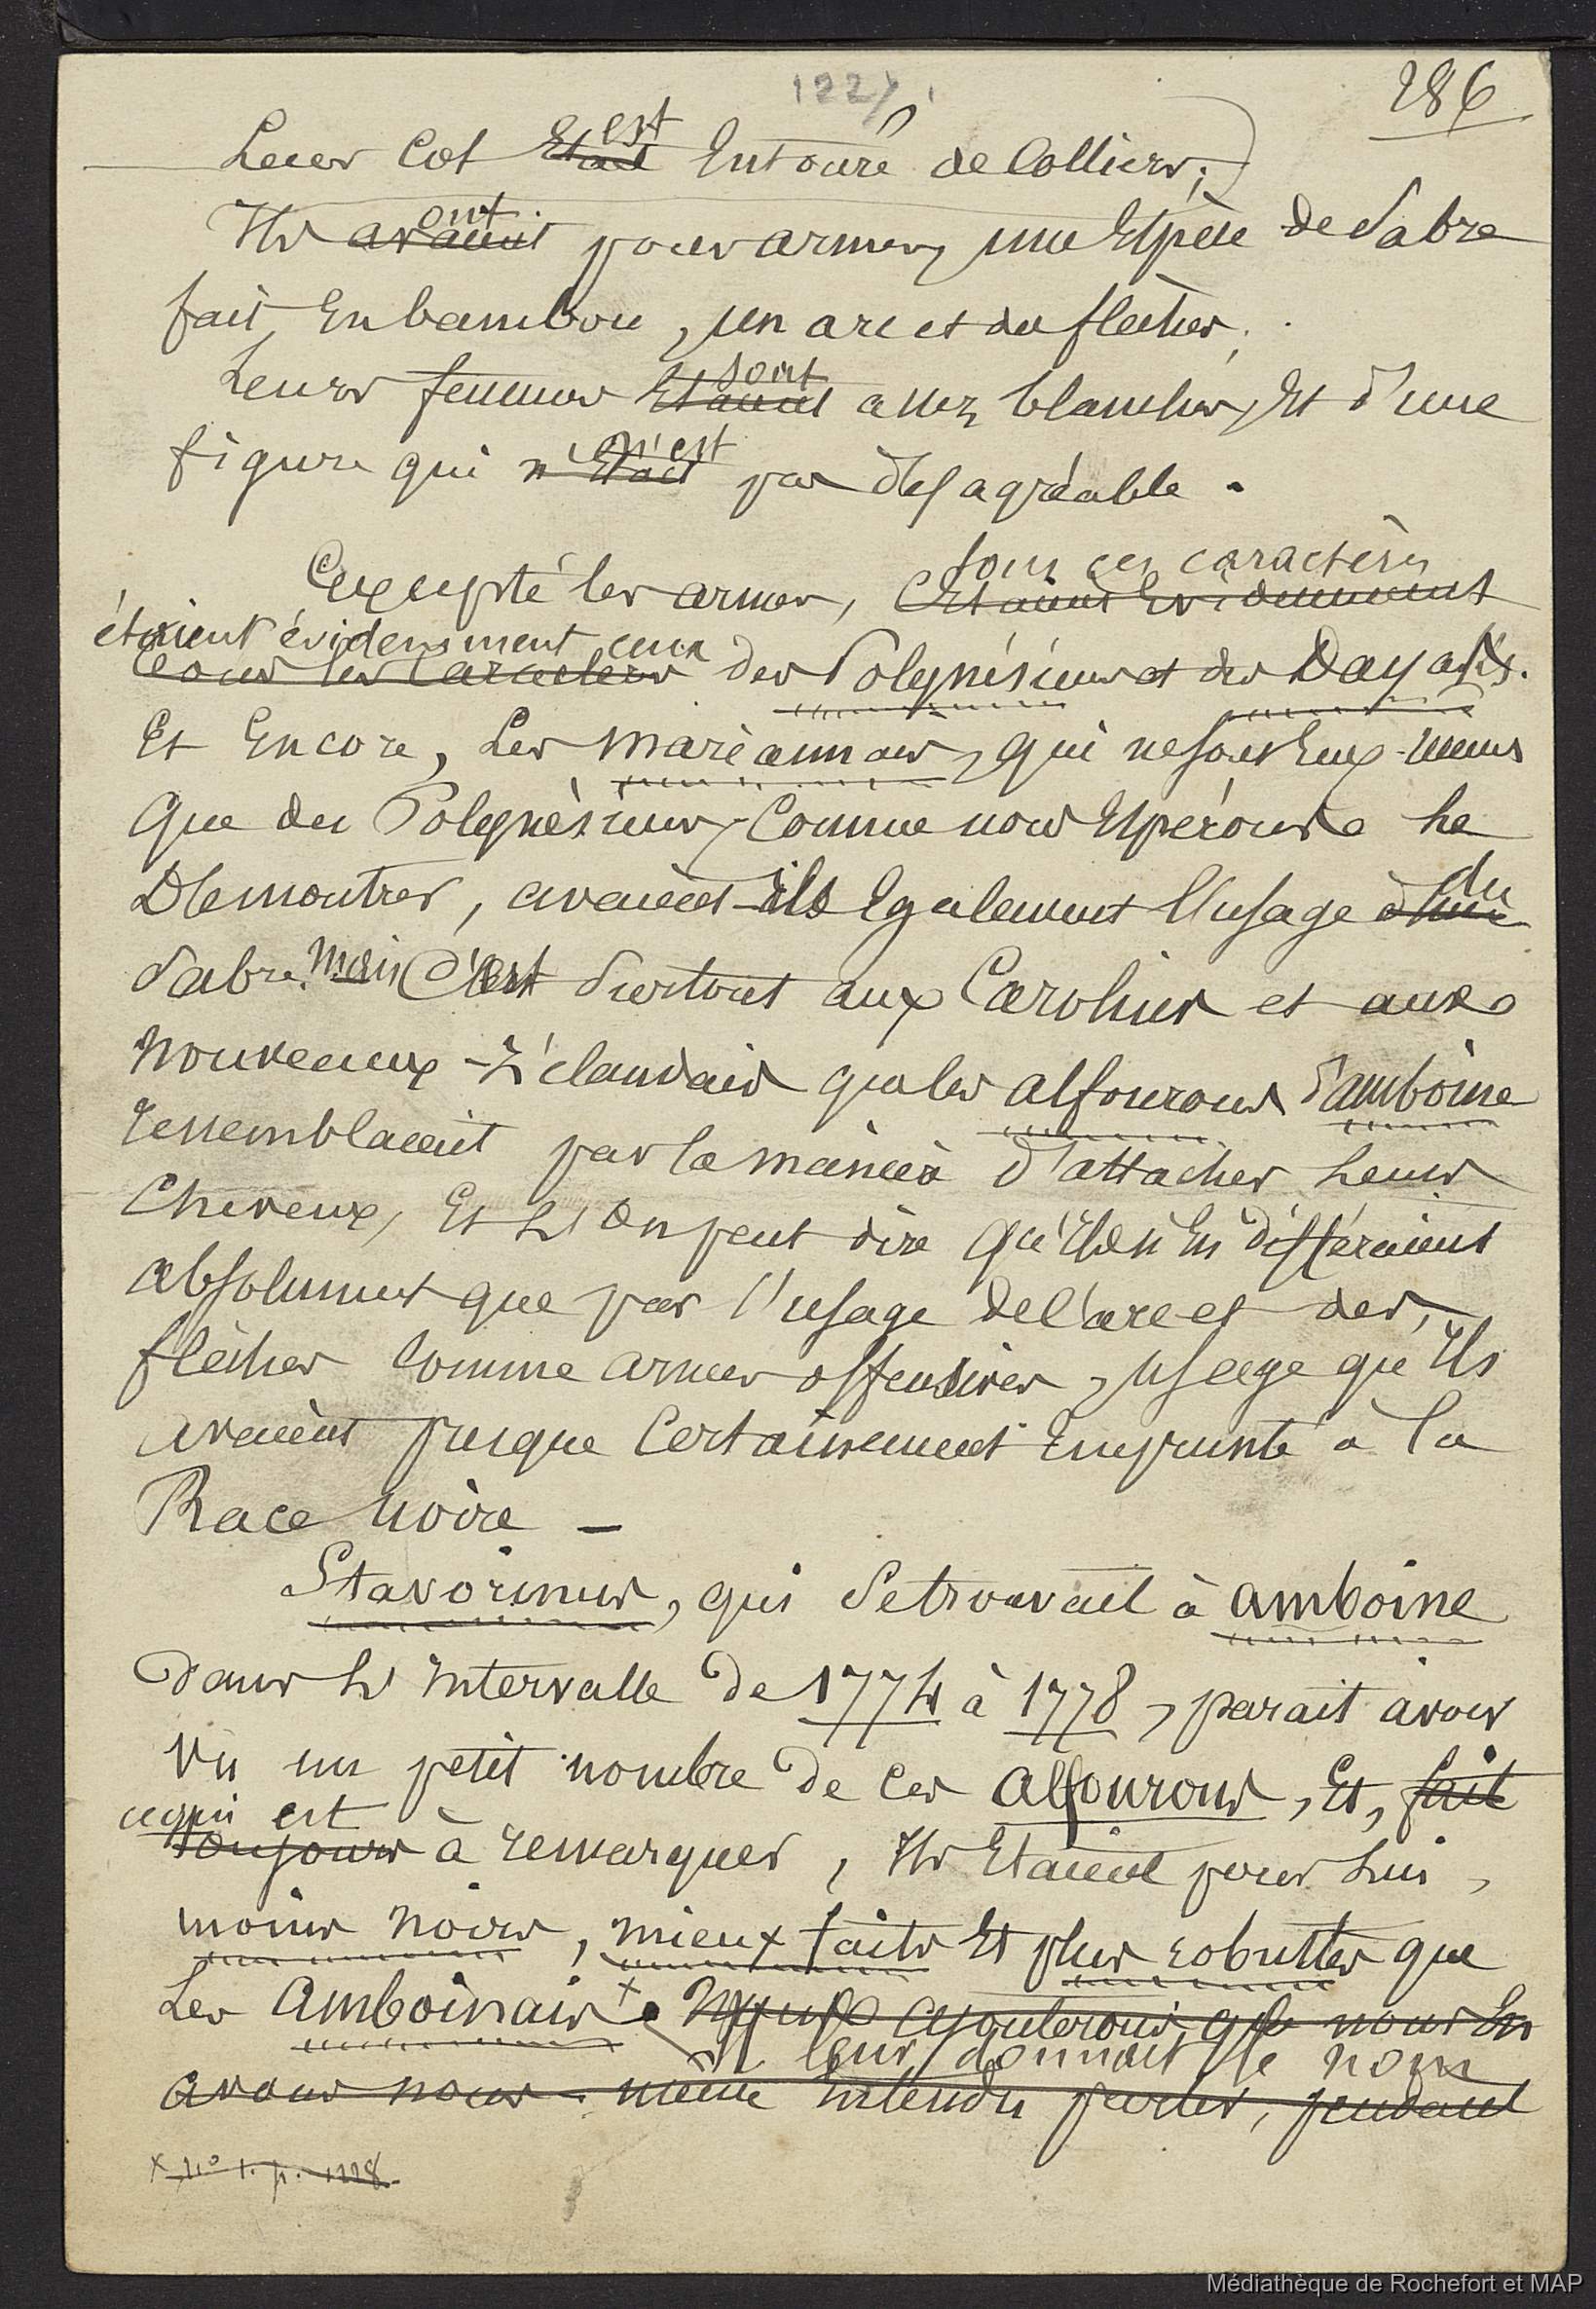 1227
286
Leur Col Etait est Entouré de Colliers;
Ils avaient ont pour armes, une Espèce de Sabre
fait En bambou, un arc et des flèches.
Leurs femmes Etaient sont assez blanches, Et d'une
figure qui n'Etait n'est pas désagréable.
Excepté les armes, C'Etaient Evidemment tous ces caractères
étaient évidemment ceux
tous les Caractères des Polynésiens et des Dayaks.
Et Encore, Les mariannais, qui ne sont Eux-mêmes
Que des Polynésiens, Comme nous Espérons Le
Démontrer, avaient-ils Egalement l'usage d'un du
Sabre. Mais C'est Surtout aux Carolins et aux
Nouveaux-Zélandais que les alfourous d'amboine
ressemblaient par la manière d'attacher Leurs
Cheveux, Et L'on peut dire qu'ils n'En différaient
absolument que par l'usage de l'arc et des
flèches Comme armes offensives, usage qu'Ils
avaient presque Certainement Emprunté à la
Race Noire —
Stavorinus, qui Se trouvait à amboine
dans L'intervalle de 1774 à 1778, parait avoir
Vu un petit nombre de Ces alfourous, Et, fait
ce qui est
toujours à remarquer, Ils Etaient pour Lui,
moins noirs, mieux faits Et plus robustes que
Les Amboinais x. Nous ajouterons, que nous En
leur donnait le nom
avons nous-même Entendu parler, pendant
x n° 1. p. 1228.
Médiathèque de Rochefort et MAP